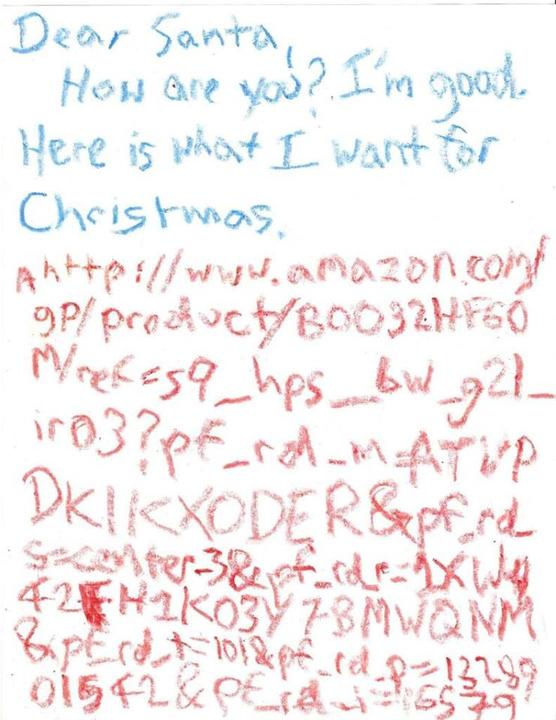 Dear Santa,
How are you? I'm good.
Here is what I want for
Christmas.
http://www.amazon.com/
gp/product/B0032HF60
M/ref=s9_hps_bw_g21_
ir03?pf_rd_m=ATVP
DKIKX0DER&pf_rd
s=center-3&pf_rd_r=1XWYY
42FH1K03Y7BMWQNM
&pf_rd_t=101&pf_rd_p=13289
01542&pf_rd_i=16579